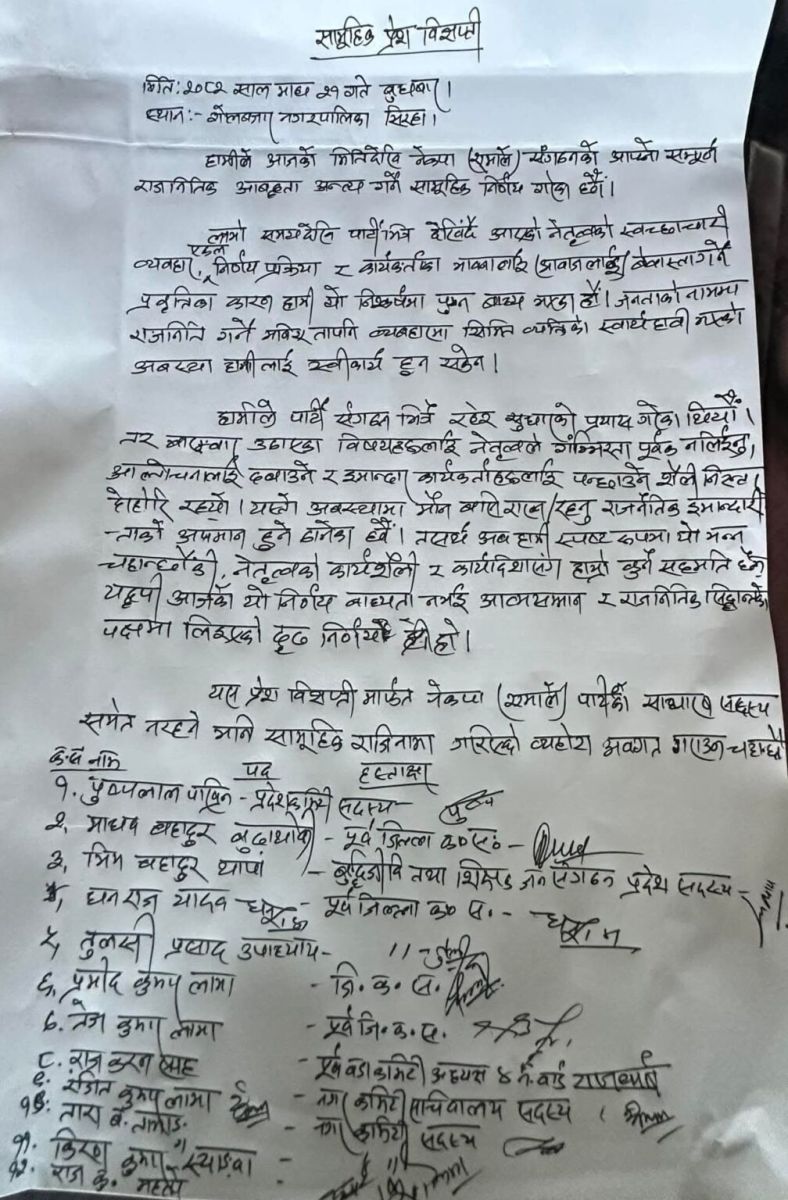 सामूहिक प्रेश विज्ञप्ती
मिति: २०८२ साल माघ २१ गते बुधबार ।
स्थान:- गोलबजार नगरपालिका सिरहा ।
हामीले आजको मितिदेखि नेकपा (एमाले) संगठनको आफ्नो सम्पूर्ण
राजनितिक आबद्धता अन्त्य गर्ने सामूहिक निर्णय गरेका छौं ।
लामो समयदेखि पार्टी भित्र देखिँदै आएको नेतृत्वको स्वच्छाचारी
व्यवहार, एकल निर्णय प्रक्रिया र कार्यकर्ताका भावनालाई (आवाजलाई) बेवास्ता गर्ने
प्रवृत्तिका कारण हामी यो निष्कर्षमा पुग्न बाध्य भएका हौं । जनताको नाममा
राजनिति गर्ने भनिए तापनि व्यवहारमा सिमित व्यक्तिको स्वार्थ हावी भएको
अवस्था हामीलाई स्वीकार्य हुन सकेन ।
हामीले पार्टी संगठन भित्रै रहेर सुधारको प्रयास गरेका थियौं ।
तर बारम्बार उठाएका विषयहरुलाई नेतृत्वले गम्भिरता पूर्वक नलिईनु,
आलोचनालाई दबाउने र इमान्दार कार्यकर्ताहरुलाई पन्छाउने शैली निरन्तर
दोहोरि रह्यो । यस्तो अवस्थामा मौन बसि राख्नु/रहनु राजनैतिक इमान्दारी
ताको अपमान हुने ठानेका छौं । तसर्थ अब हामी स्पष्ट रुपमा यो भन्न
चहान्छौं की, नेतृत्वको कार्यशैली र कार्यदिशासंग हाम्रो कुनै सहमति छैन
यद्यपी आजको यो निर्णय बाध्यता नभई आत्मसम्मान र राजनितिक सिद्धान्तको
पक्षमा लिइएको दृढ निर्णय हो ।
यस प्रेश विज्ञप्ती मार्फत नेकपा (एमाले) पार्टीको साधारण सदस्य
समेत नरहने भनि सामूहिक राजिनामा गरिएको व्यहोरा अवगत गराउन चहान्छौं
क्र.सं नाम पद हस्ताक्षर
१. पुष्पलाल पाख्रिन - प्रदेश कमिटी सदस्य - पुष्प
२. माधव बहादुर बुढाथोकी - पूर्व जिल्ला क० स० -
३. भिम बहादुर थापा - बुद्धिजीवि तथा शिक्षक जन संगठन प्रदेश सदस्य -
४. धनराज यादव - पूर्व जिल्ला क० स. -
५. तुलसी प्रसाद उपाध्याय - " - तुलसी
६. प्रमोद कुमार लामा - जि. क. स.
७. तेज कुमार लामा - पूर्व जि. क. स.
८. राज करन साह - पूर्व वडा कमिटी अध्यक्ष ४ नं वार्ड
९. रंजित कुमार लामा - नगर कमिटी सचिवालय सदस्य
१०. तारा ब. तामाङ - नगर कमिटी सदस्य
११. किरण कुमार स्याङवा - "
१२. राज कु. महतो "